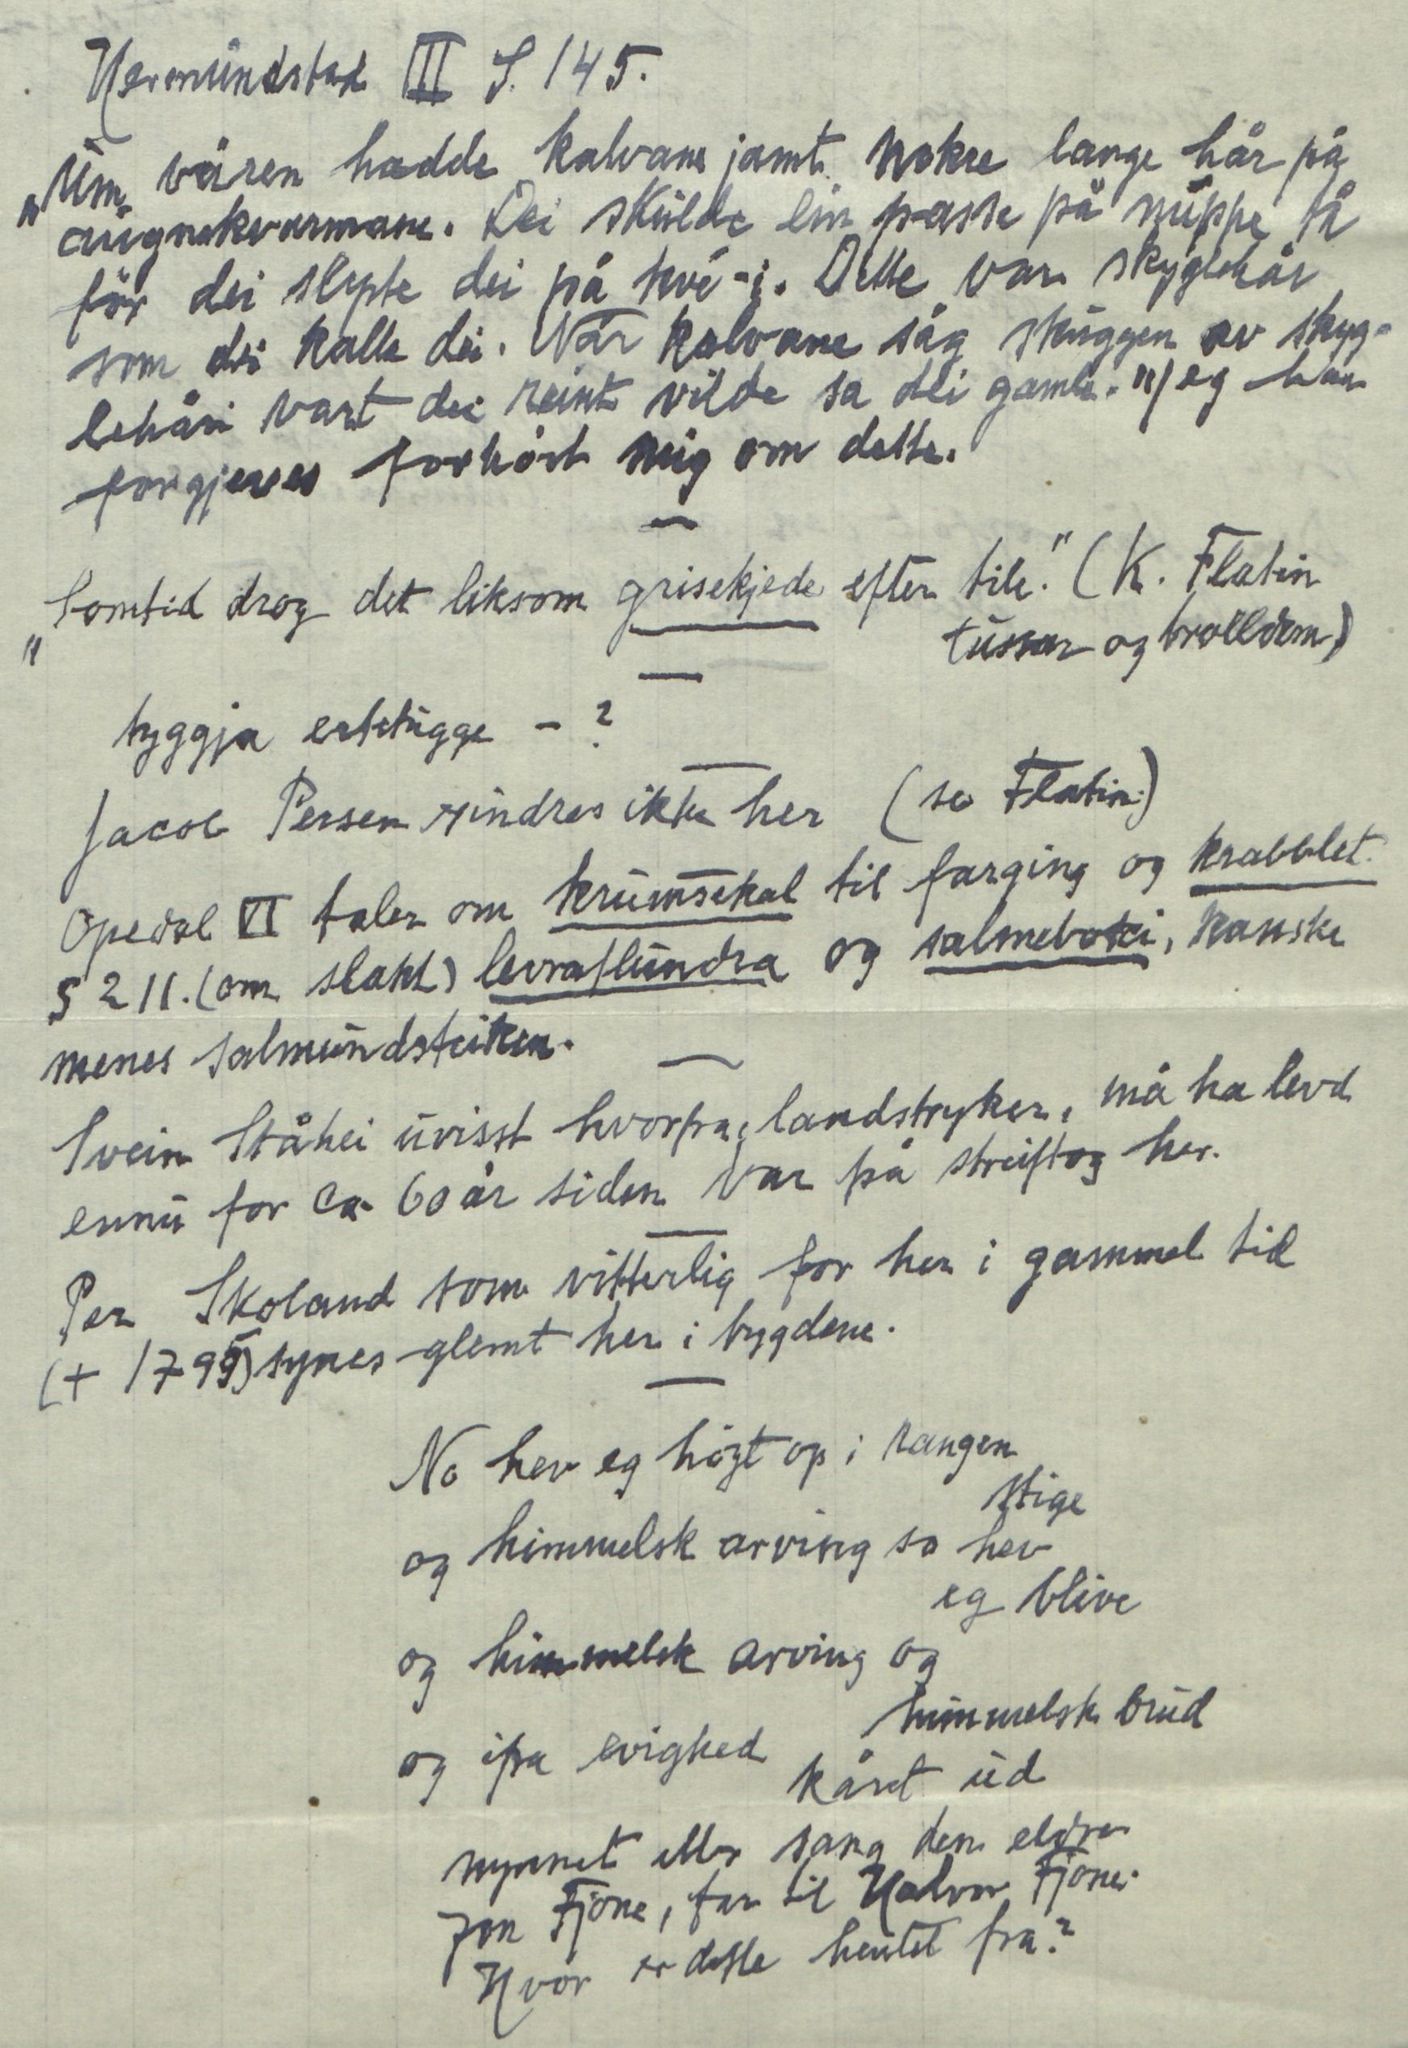 Hermundstad III S. 145.
"Um våren hadde kalvane jamt nokre lange hår på
augnekvarmane. Dei skulde ein passe på nuppe tå
för dei slepte dei på kvé-i. Dette var skyglehår
som dei kalla dei. Når kalvane såg skuggen av skyg-
lehåri vart dei reint vilde sa dei gamle." Jeg har
forgjeves forhört mig om dette.
—
"Somtid drog det liksom grisekjede efter tile." (K. Flatin
tussar og trolldom)
—
tyggja ertetugge - ?
—
Jacob Persen mindres ikke her (se Flatin)
Opedal VI taler om krumsekal til farging og krabblet
§ 211. (om slakt) levraflundra og salmeboki, kanske
menes salmundsteiken.
—
Svein Ståhei uvisst hvorfra, landstryker, må ha levd
ennu for ca 60 år siden var på streiftog her.
—
Per Skoland som vitterlig for her i gammel tid
(+ 1795) synes glemt her i bygdene.
—
No hev eg högt op i rangen
stige
og himmelsk arving so hev
eg blive
og himmelsk arving og
himmelsk brud
og ifra evighed
kåret ud
nynnet eller sang den eldre
Jon Fjone, far til Halvor Fjone.
Hvor er dette hentet fra?